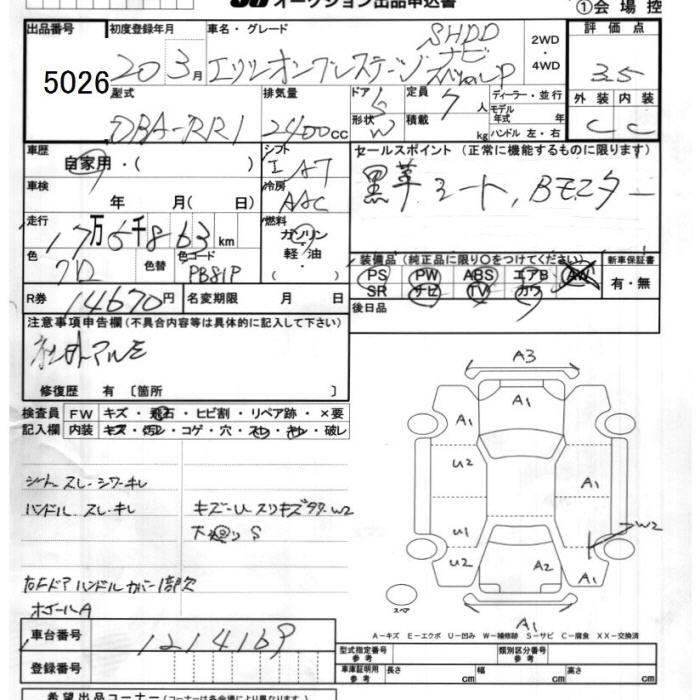 オークション出品申込書
①会場控
出品番号 5026
初度登録年月 20 3月
車名・グレード
SHDD
ナビ
2WD
・
4WD
評価点 3.5
型式 DBA-RR1
排気量 2400cc
ドア 5
形状 W
定員 7人
積載 kg
ディーラー・並行
モデル年式 年式
ハンドル 左・右
外装 C
内装 C
車歴 自家用・( )
シフト IAT
セールスポイント (正常に機能するものに限ります)
黒革シート, Bモニター
車検 年 月( 日)
冷房 AAC
走行 17万5千863km
燃料 ガソリン・軽油・
色 クロ
色替
色コード PB81P
装備品(純正品に限り○をつけてください)
PS PW ABS エアB AW
SR ナビ TV カワ
新車保証書 有・無
R券 14670円
名変期限 月 日
後日品
注意事項申告欄(不具合内容等は具体的に記入して下さい)
社外アルミ
修復歴 有 〔箇所 〕
検査員 FW キズ・飛石・ヒビ割・リペア跡・×要
記入欄 内装 キズ・汚レ・コゲ・穴・スレ・キレ・破レ
シート スレ・シワ・キレ
ハンドル スレ・キレ
キズ・U スリキズ タタ W2
S
右Fドアハンドルカバー1部欠
ホイールA
A3
A1
A1
U2
A1
A1
U1
W2
U2
A2
A1
A1
スペア
A-キズ E-エクボ U-凹み W-補修跡 S-サビ C-腐食 XX-交換済
車台番号 1214169
登録番号
型式指定番号 参考
類別区分番号 参考
車庫証明用 参考 長さ cm 幅 cm 高さ cm
希望出品コーナー(コーナーは各会場により異なります)